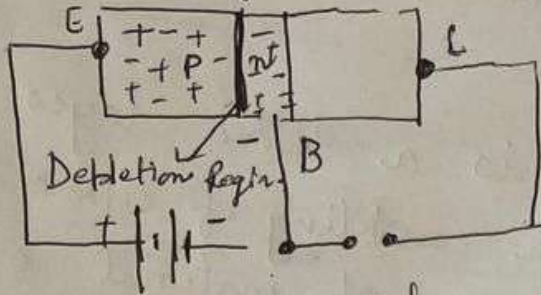 E
C
+ - +
- + P -
+ - +
-
N
-
-
B
Depletion Regin.
+ -